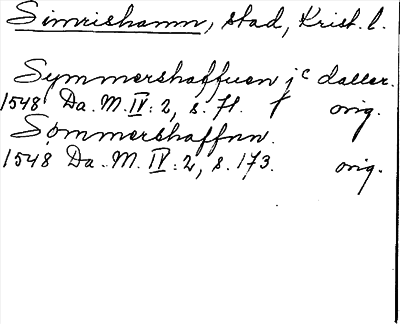 Simrishamn, stad, Krist. l.
Symmershaffuen jc daller.
1548 Da. M. IV: 2, s. 71. orig.
Sømmershaffnn.
1548 Da. M. IV: 2, s. 173. orig.